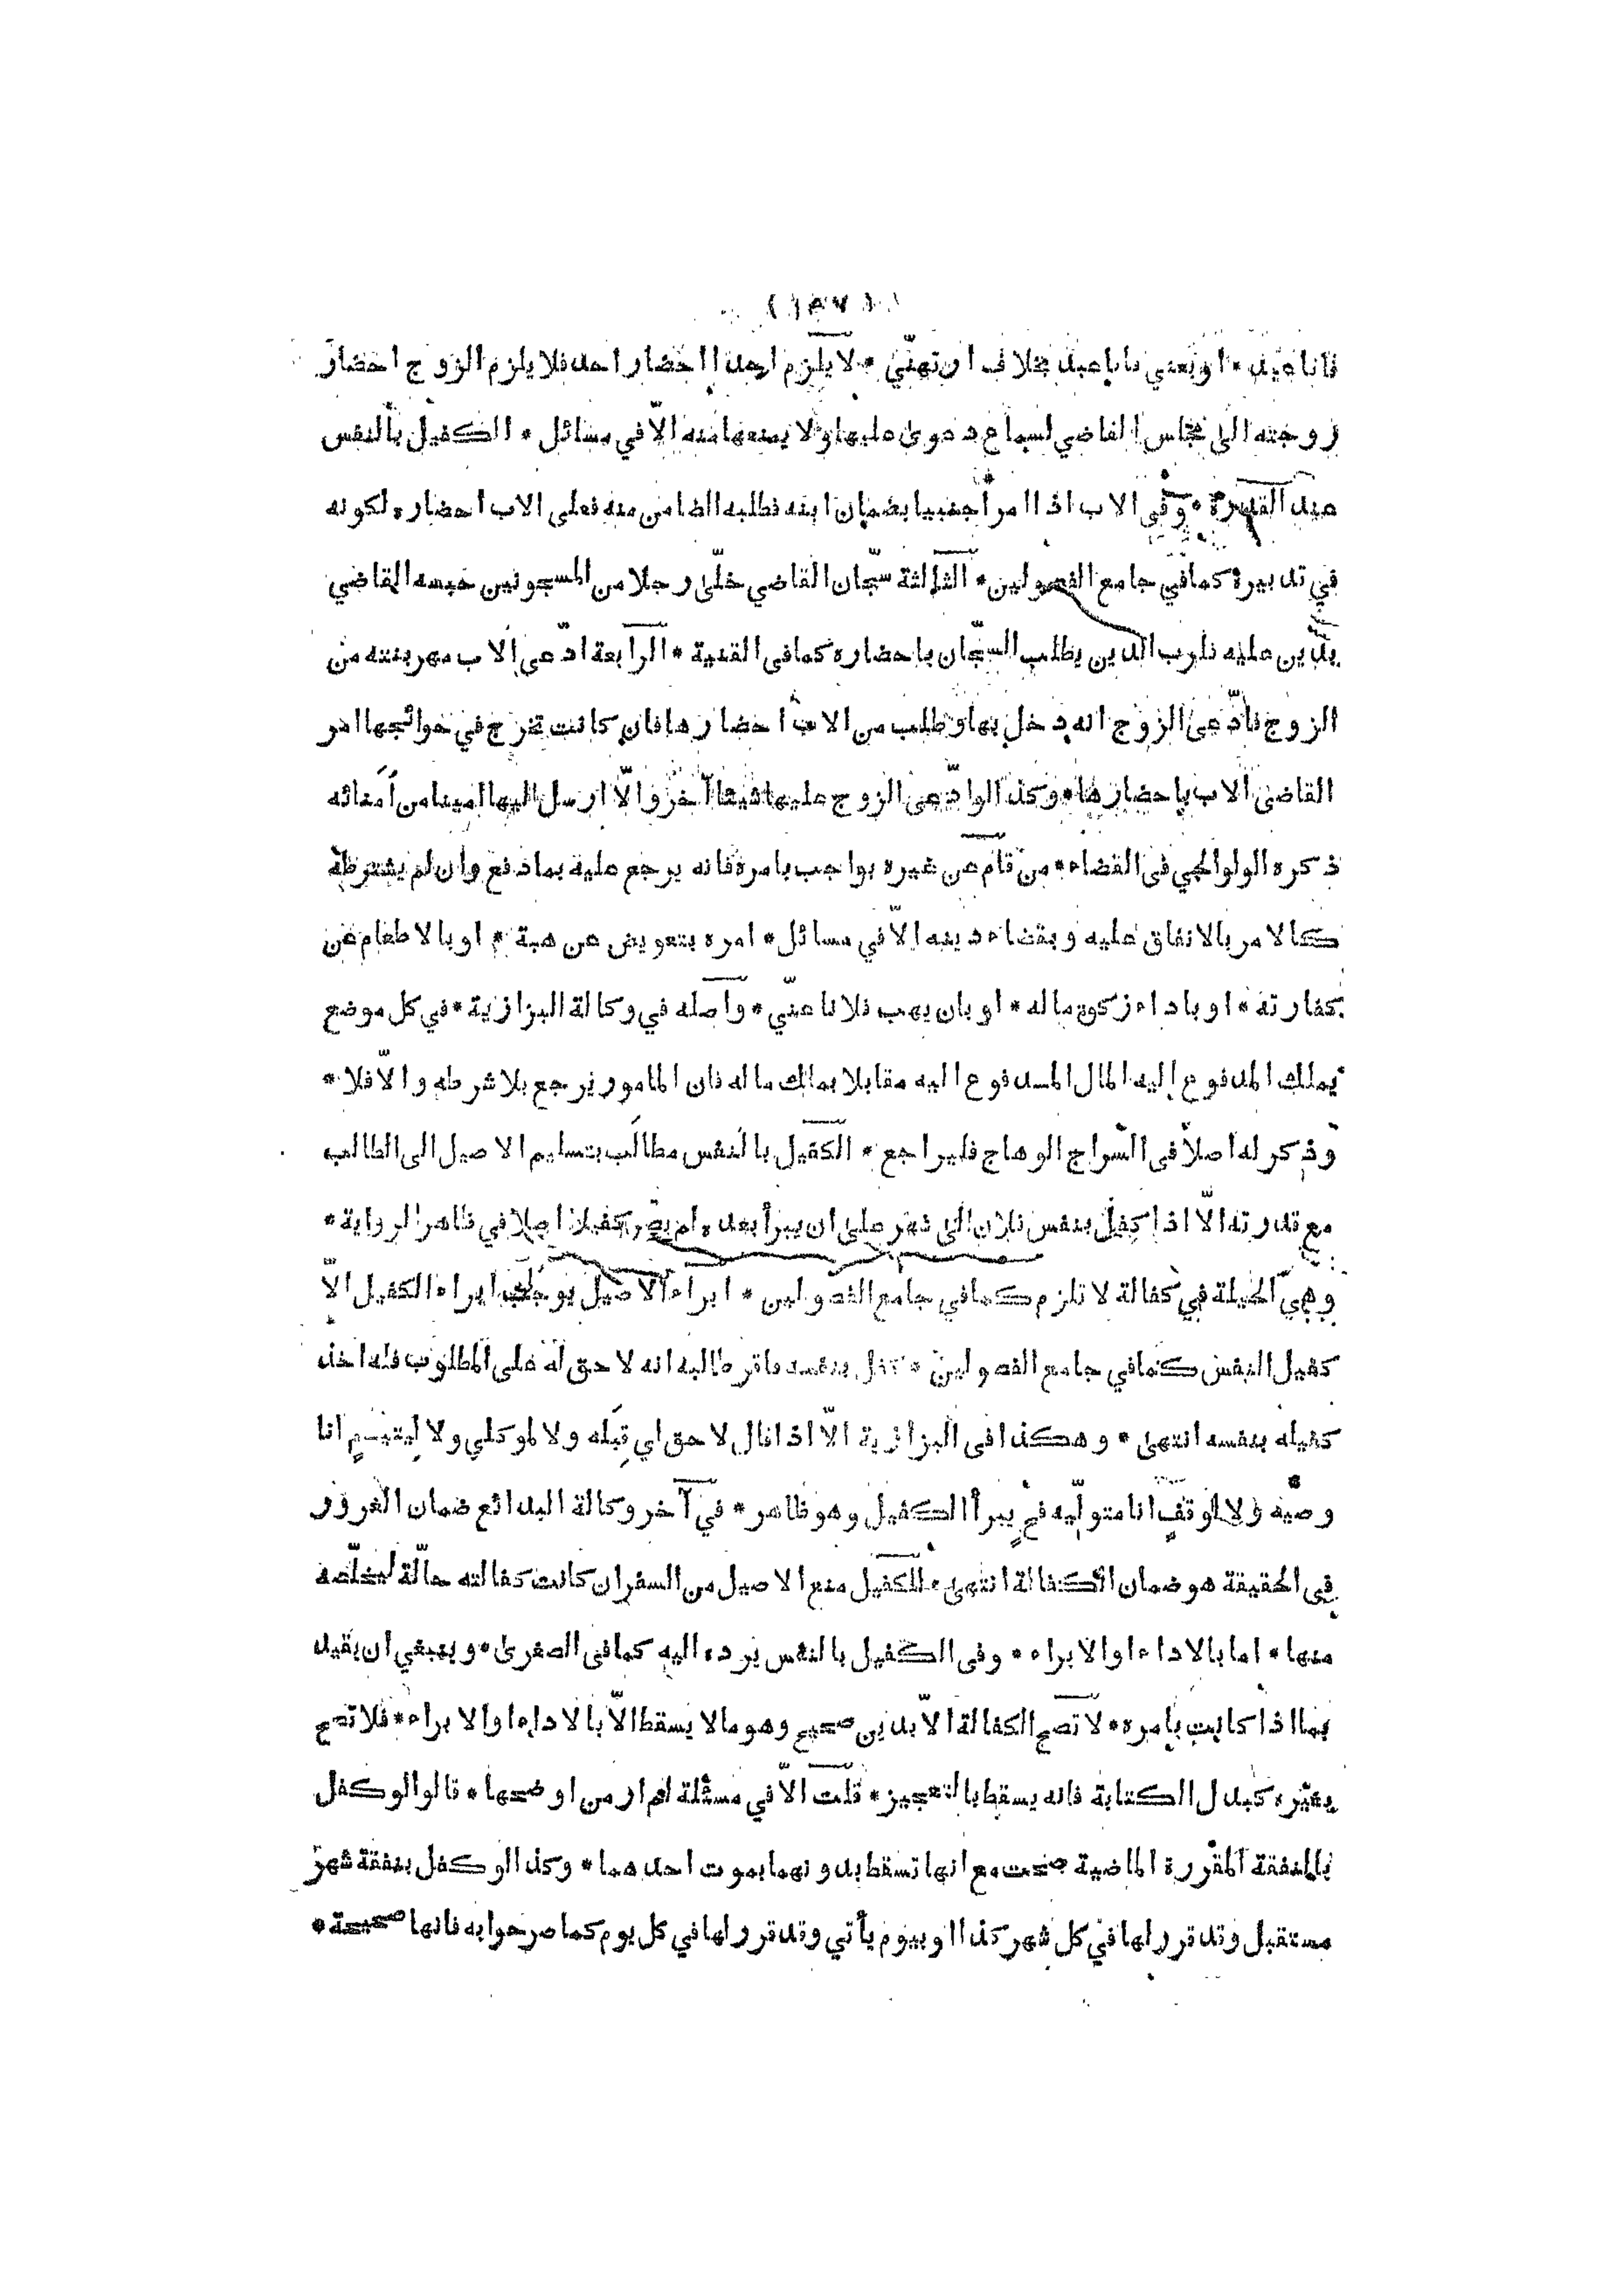 فانا عبد * او بعني فانا عبد بخلاف ان تهنّي * لا يلزم احدا احضار احد فلا يلزم الزوج احضار
زوجته الى مجلس القاضي لسماع دعوى عليها ولا يمنعها منه الّا في مسائل * الكفيل بالنفس
عند القدرة * وفى الاب اذا امر اجنبيا بضمان ابنه فطلبه الضامن منه فعلى الاب احضاره لكونه
في تدبيره كما في جامع الفصولين * الثالثة سجّان القاضي خلّى رجلا من المسجونين حبسه القاضي
بدين عليه فلرب الدين يطلب السجّان باحضاره كما فى القنية * الرابعة ادّعى الاب مهر بنته من
الزوج فادّعى الزوج انه دخل بها وطلب من الاب احضارها فان كانت تخرج في حوائجها امر
القاضي الاب باحضارها * وكذا لو ادّعى الزوج عليها شيئا آخر والّا ارسل اليها امينا من أمنائه
ذكره الولوالجي فى القضاء * من قام عن غيره بواجب بامره فانه يرجع عليه بما دفع وان لم يشترطه
كالامر بالانفاق عليه وبقضاء دينه الّا في مسائل * امره بتعويض عن هبة * او بالاطعام عن
كفارته * او باداء زكوة ماله * او بان يهب فلانا عنّي * واصله في وكالة البزازية * في كل موضع
يملك المدفوع اليه المال المدفوع اليه مقابلا بملك ماله فان المامور يرجع بلا شرطه والّا فلا *
وذكر له اصلا فى السّراج الوهاج فليراجع * الكفيل بالنفس مطالَب بتسليم الاصيل الى الطالب
مع قدرته الّا اذا كفل بنفس فلان الى شهر على ان يبرأ بعده لم يصر كفيلا اصلا في ظاهر الرواية *
وهي الحيلة في كفالة لا تلزم كما في جامع الفصولين * ابراء الاصيل يوجب ابراء الكفيل الّا
كفيل النفس كما في جامع الفصولين * كفل بنفسه فاقر طالبه انه لا حق له على المطلوب فله اخذ
كفيله بنفسه انتهى * وهكذا فى البزازية الّا اذا قال لا حق لي قبله ولا لموكلي ولا ليتيم انا
وصيّه ولا لوقف انا متولّيه فح يبرأ الكفيل وهو ظاهر * في آخر وكالة البدائع ضمان الغرور
فى الحقيقة هو ضمان الكفالة انتهى * للكفيل منع الاصيل من السفر ان كانت كفالته حالّة ليخلّصه
منها * اما بالاداء او الابراء * وفى الكفيل بالنفس يرده اليه كما فى الصغرى * وينبغي ان يقيد
بما اذا كانت بامره * لا تصح الكفالة الّا بدين صحيح وهو ما لا يسقط الّا بالاداء او الابراء * فلا تصح
بغيره كبدل الكتابة فانه يسقط بالتعجيز * قلت الّا في مسئلة لم ار من اوضحها * قالوا لو كفل
بالنفقة المقررة الماضية صحت مع انها تسقط بدونهما بموت احدهما * وكذا لو كفل بنفقة شهر
مستقبل وقد قرر لها في كل شهر كذا او بيوم يأتي وقد قرر لها في كل يوم كما صرحوا به فانها صحيحة *